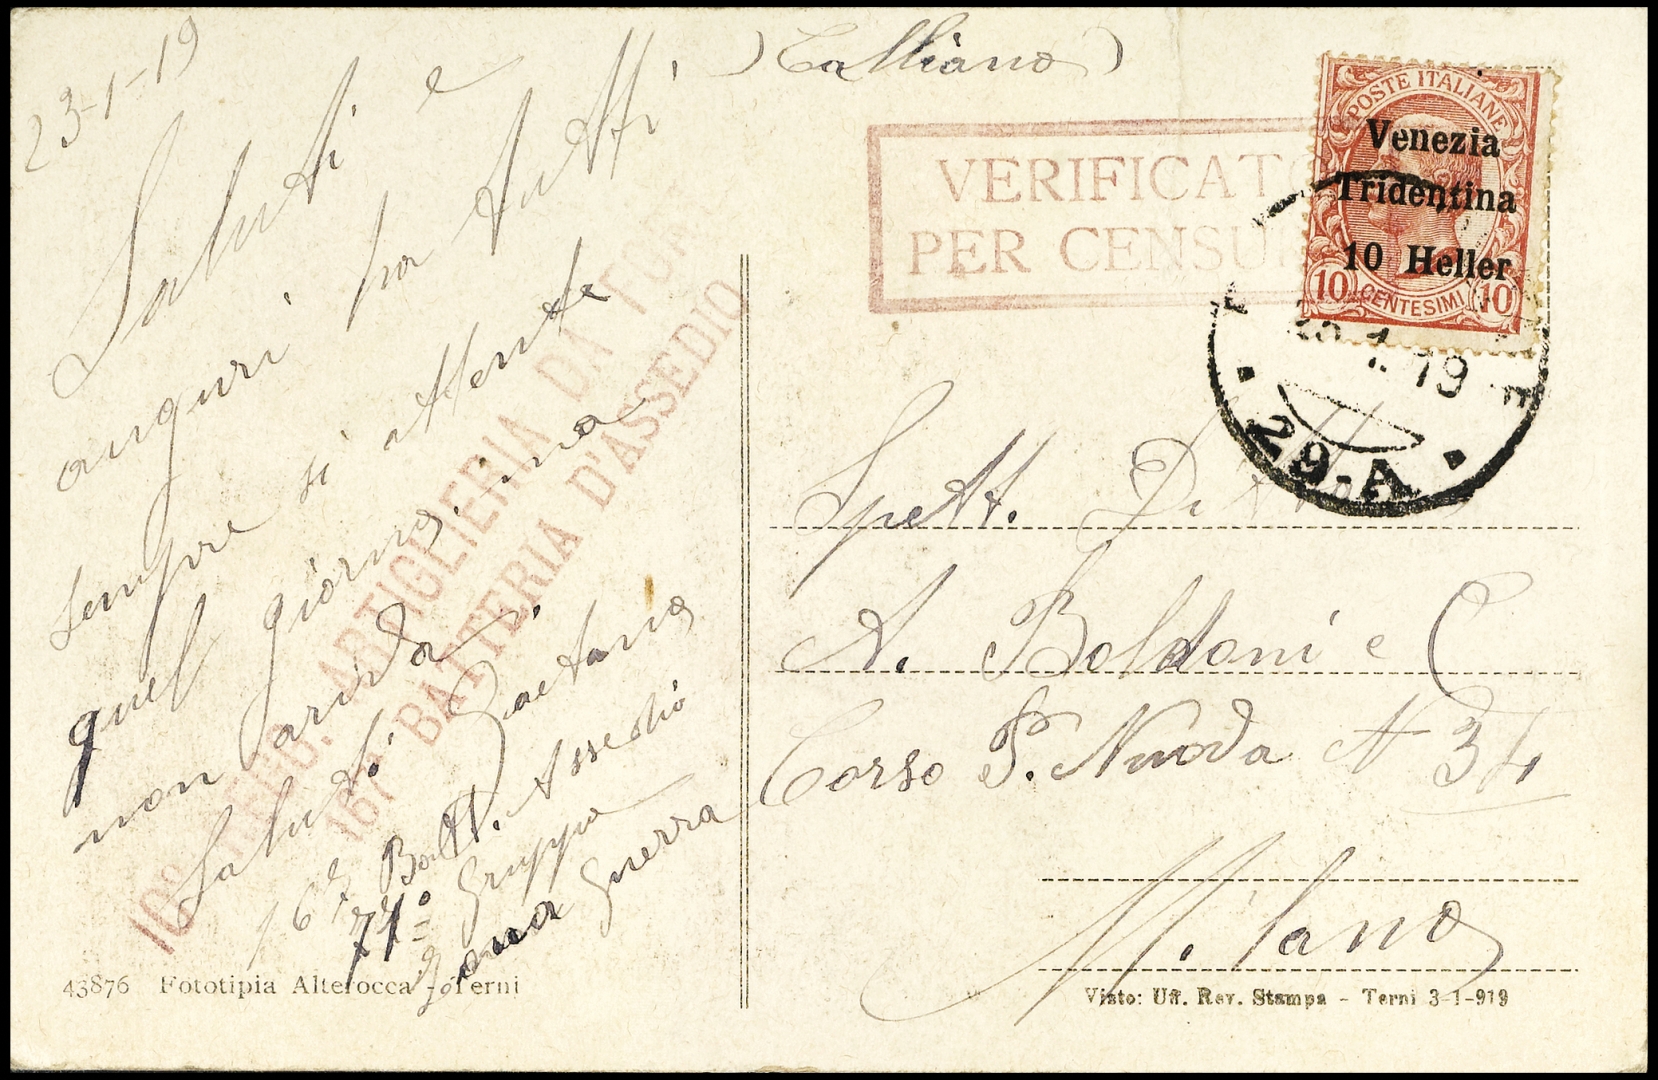 23-1-19
(Calliano)
Saluti e
auguri ha tutti
sempre si attente
quel giorno. ma
non arida.
Saluti Gaetano
167 Batt. Assedio
71° Gruppo
Zona Guerra
10° REGG. ARTIGLIERIA DA FOR
167 BATTERIA D'ASSEDIO
43876 Fototipia Alterocca - Terni
VERIFICATO
PER CENSU
POSTE ITALIANE
Venezia
Tridentina
10 Heller
10 CENTESIMI 10
1.19
29-A
Spett. Ditta
A. Boldoni e C
Corso P. Nuova N 34
Milano
Visto: Uff. Rev. Stampa - Terni 3-1-919